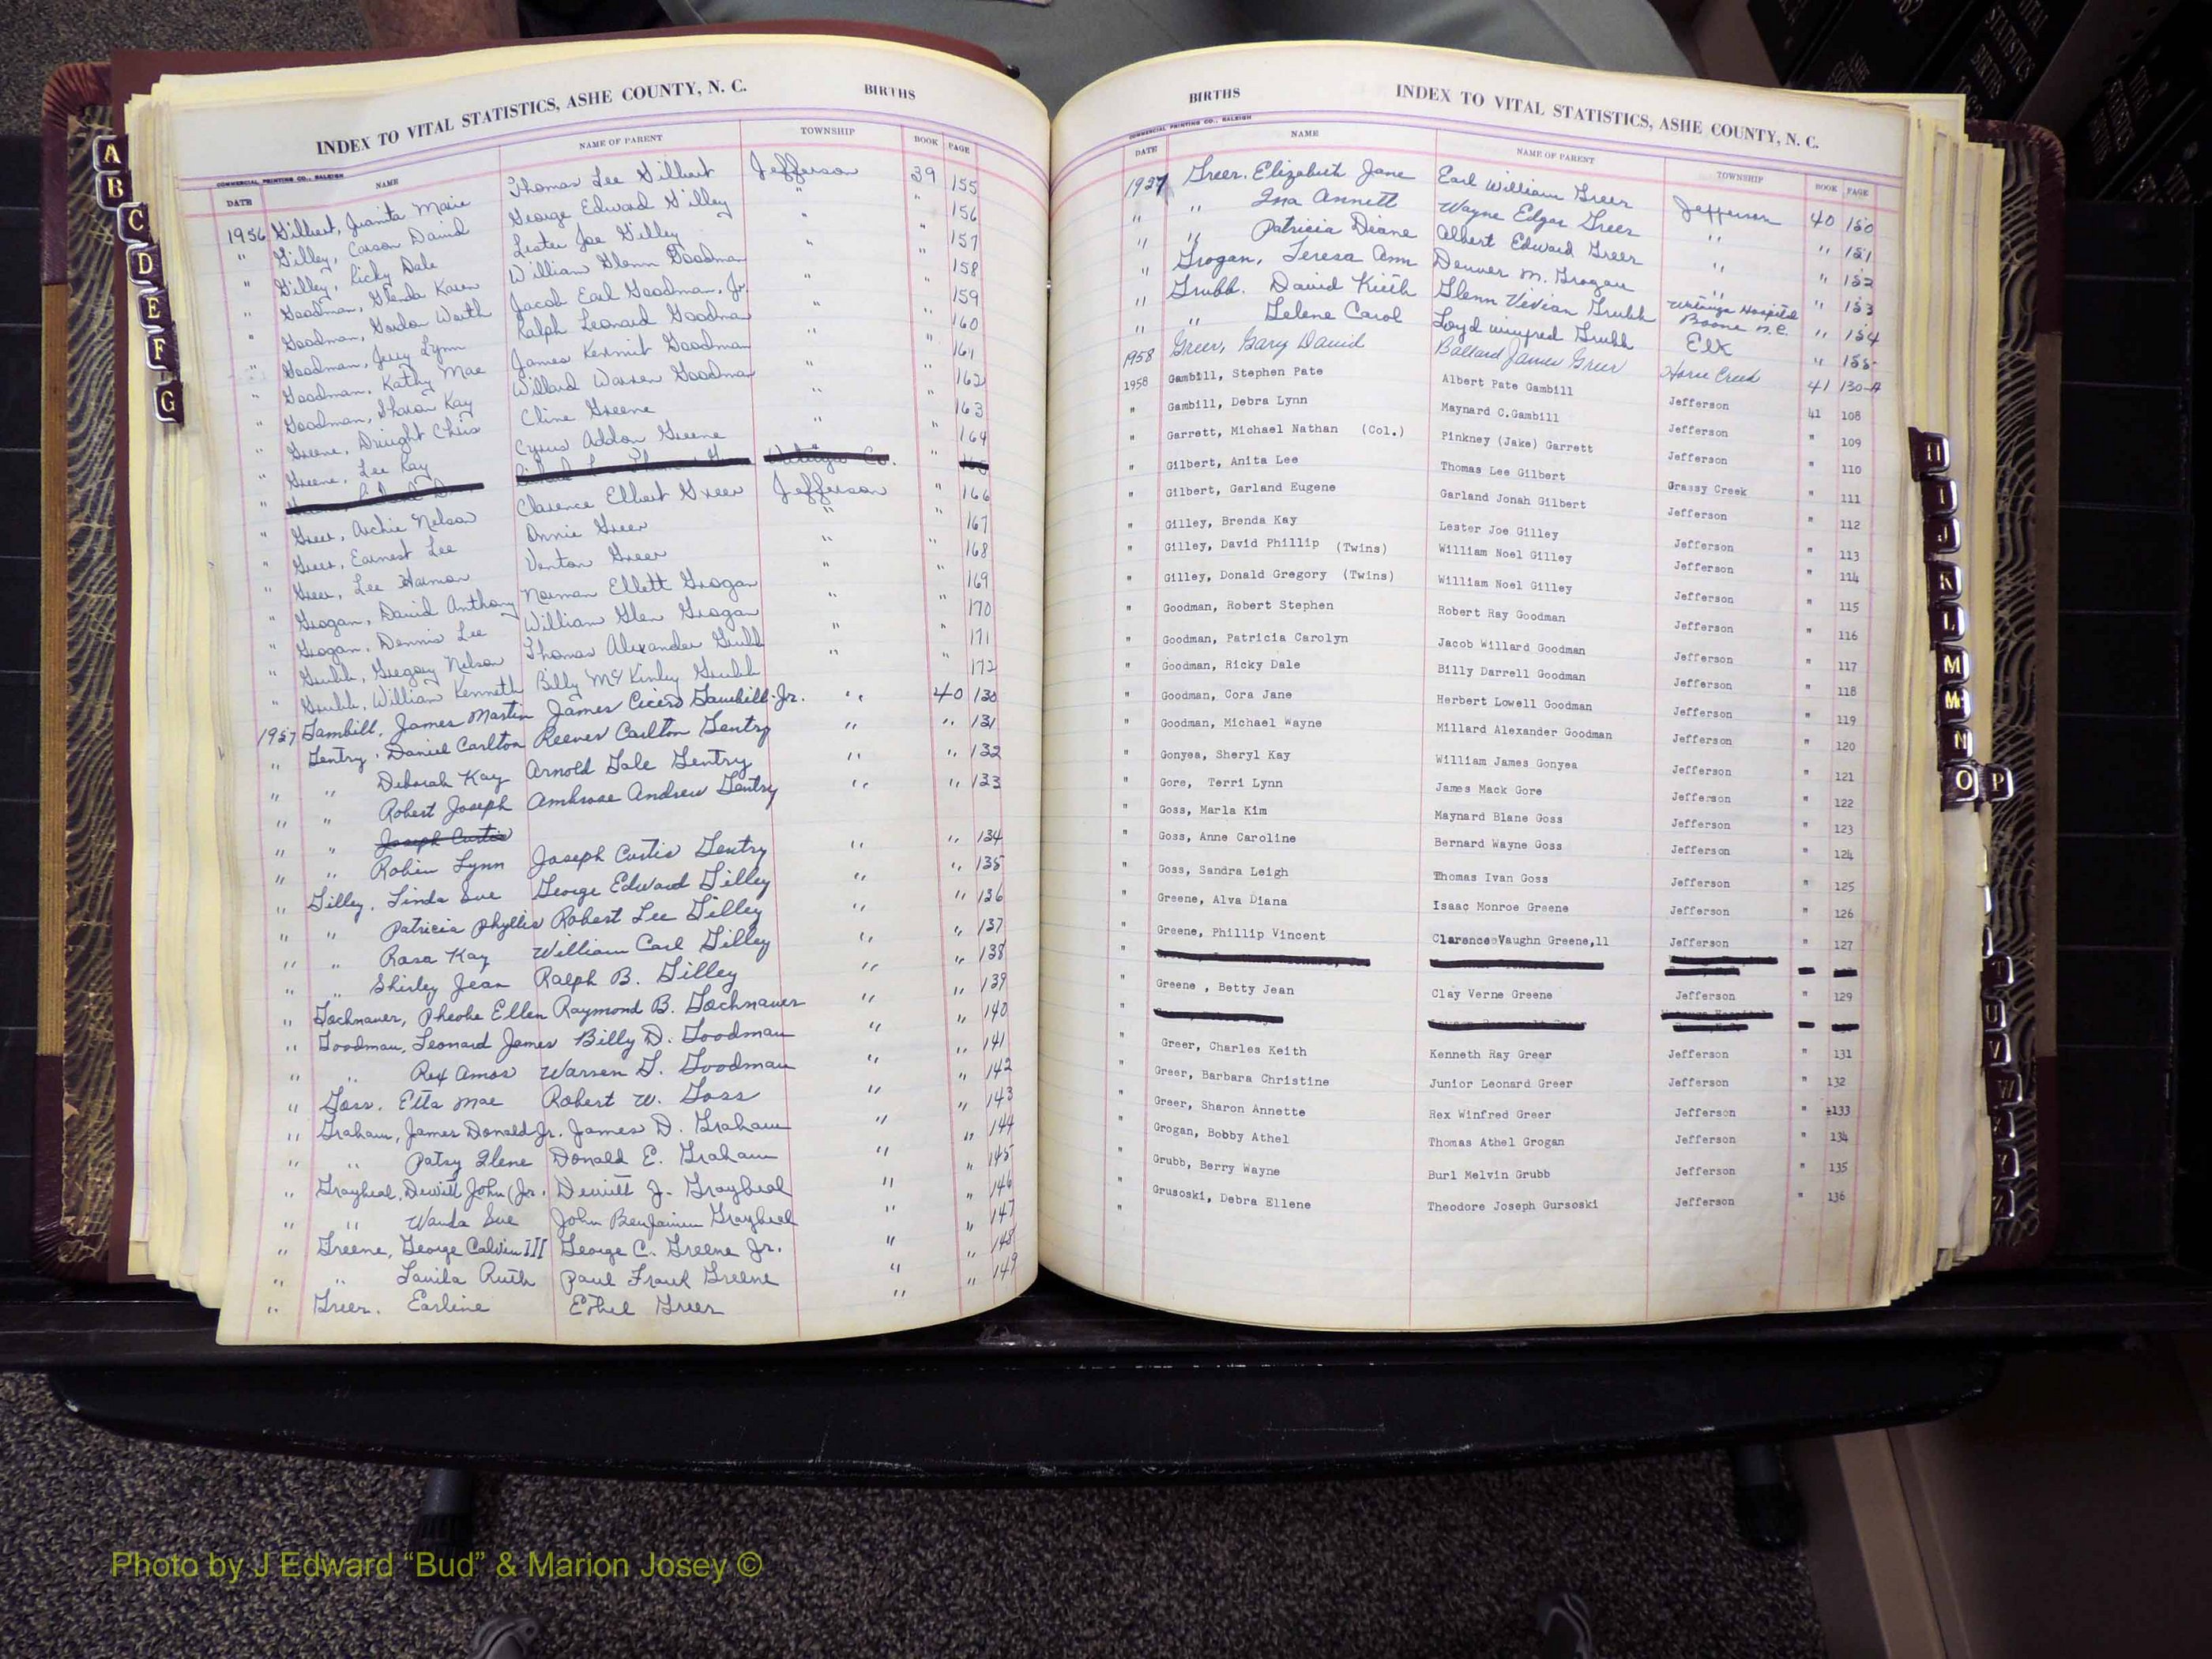 INDEX TO VITAL STATISTICS, ASHE COUNTY, N. C. BIRTHS
COMMERCIAL PRINTING CO., RALEIGH
DATE NAME NAME OF PARENT TOWNSHIP BOOK PAGE
1956 Gilbert, Juanita Marie Thomas Lee Gilbert Jefferson 39 155
" Gilley, Carson David George Edward Gilley " " 156
" Gilley, Ricky Dale Lester Joe Gilley " " 157
" Goodman, Glenda Karen William Glenn Goodman " " 158
" Goodman, Gordon Worth Jacob Earl Goodman, Jr. " " 159
" Goodman, Jerry Lynn Ralph Leonard Goodman " " 160
" Goodman, Kathy Mae James Kermit Goodman " " 161
" Goodman, Sharon Kay Willard Warren Goodman " " 162
" Greene, Dwight Chris Cline Greene " " 163
" Greene, Lee Ray Cyrus Addon Greene " " 164
"
" Greer, Archie Nelson Clarence Elbert Greer Jefferson " 166
" Greer, Earnest Lee Annie Greer " " 167
" Greer, Lee Harmon Venton Greer " " 168
" Grogan, David Anthony Norman Ellett Grogan " " 169
" Grogan, Dennis Lee William Glen Grogan " " 170
" Grubb, Gregory Nelson Thomas Alexander Grubb " " 171
" Grubb, William Kenneth Billy McKinley Grubb " " 172
1957 Gambill, James Martin James Cicero Gambill Jr. " 40 130
" Gentry, Daniel Carlton Reeves Carlton Gentry " " 131
" " Deborah Kay Arnold Gale Gentry " " 132
" " Robert Joseph Ambrose Andrew Gentry " " 133
" " Joseph Curtis
" " Robin Lynn Joseph Curtis Gentry " " 134
" Gilley, Linda Sue George Edward Gilley " " 135
" " Patricia Phyllis Robert Lee Gilley " " 136
" " Rosa Kay William Carl Gilley " " 137
" " Shirley Jean Ralph B. Gilley " " 138
" Gochnauer, Pheobe Ellen Raymond B. Gochnauer " " 139
" Goodman, Leonard James Billy D. Goodman " " 140
" " Rex Amos Warren G. Goodman " " 141
" Goss, Etta Mae Robert W. Goss " " 142
" Graham, James Donald Jr. James D. Graham " " 143
" " Patsy Ilene Donald E. Graham " " 144
" Graybeal, Dewitt John (Jr. Dewitt J. Graybeal " " 145
" " Wanda Sue John Benjamin Graybeal " " 146
" Greene, George Calvin III George C. Greene Jr. " " 147
" " Ruth Paul Frank Greene " " 148
" Greer, Earline Ethel Greer " " 149
BIRTHS INDEX TO VITAL STATISTICS, ASHE COUNTY, N. C.
COMMERCIAL PRINTING CO., RALEIGH
DATE NAME NAME OF PARENT TOWNSHIP BOOK PAGE
1957 Greer, Elizabeth Jane Earl William Greer Jefferson 40 150
" " Ina Annett Wayne Edgar Greer " " 151
" " Patricia Diane Albert Edward Greer " " 152
" Grogan, Teresa Ann Denver M. Grogan " " 153
" Grubb. David Keith Glenn Vivian Grubb Watauga Hospital Boone N.C. " 154
" " Jelene Carol Loyd Winfred Grubb Elk " 155
1958 Greer, Gary David Ballard James Greer Horse Creek 41 130-A
1958 Gambill, Stephen Pate Albert Pate Gambill Jefferson 41 108
" Gambill, Debra Lynn Maynard C.Gambill Jefferson " 109
" Garrett, Michael Nathan (Col.) Pinkney (Jake) Garrett Jefferson " 110
" Gilbert, Anita Lee Thomas Lee Gilbert Grassy Creek " 111
" Gilbert, Garland Eugene Garland Jonah Gilbert Jefferson " 112
" Gilley, Brenda Kay Lester Joe Gilley Jefferson " 113
" Gilley, David Phillip (Twins) William Noel Gilley Jefferson " 114
" Gilley, Donald Gregory (Twins) William Noel Gilley Jefferson " 115
" Goodman, Robert Stephen Robert Ray Goodman Jefferson " 116
" Goodman, Patricia Carolyn Jacob Willard Goodman Jefferson " 117
" Goodman, Ricky Dale Billy Darrell Goodman Jefferson " 118
" Goodman, Cora Jane Herbert Lowell Goodman Jefferson " 119
" Goodman, Michael Wayne Millard Alexander Goodman Jefferson " 120
" Gonyea, Sheryl Kay William James Gonyea Jefferson " 121
" Gore, Terri Lynn James Mack Gore Jefferson " 122
" Goss, Marla Kim Maynard Blane Goss Jefferson " 123
" Goss, Anne Caroline Bernard Wayne Goss Jefferson " 124
" Goss, Sandra Leigh Thomas Ivan Goss Jefferson " 125
" Greene, Alva Diana Isaac Monroe Greene Jefferson " 126
" Greene, Phillip Vincent Clarence Vaughn Greene,ll Jefferson " 127
"
" Greene , Betty Jean Clay Verne Greene Jefferson " 129
"
" Greer, Charles Keith Kenneth Ray Greer Jefferson " 131
" Greer, Barbara Christine Junior Leonard Greer Jefferson " 132
" Greer, Sharon Annette Rex Winfred Greer Jefferson " 133
" Grogan, Bobby Athel Thomas Athel Grogan Jefferson " 134
" Grubb, Berry Wayne Burl Melvin Grubb Jefferson " 135
" Grusoski, Debra Ellene Theodore Joseph Gursoski Jefferson " 136
A
B
C
D
E
F
G
H
I
J
K
L
M
Mc
N
O P
T
U
V
W
Y
Z
VITAL STATISTICS BIRTHS
Photo by J Edward “Bud” & Marion Josey ©